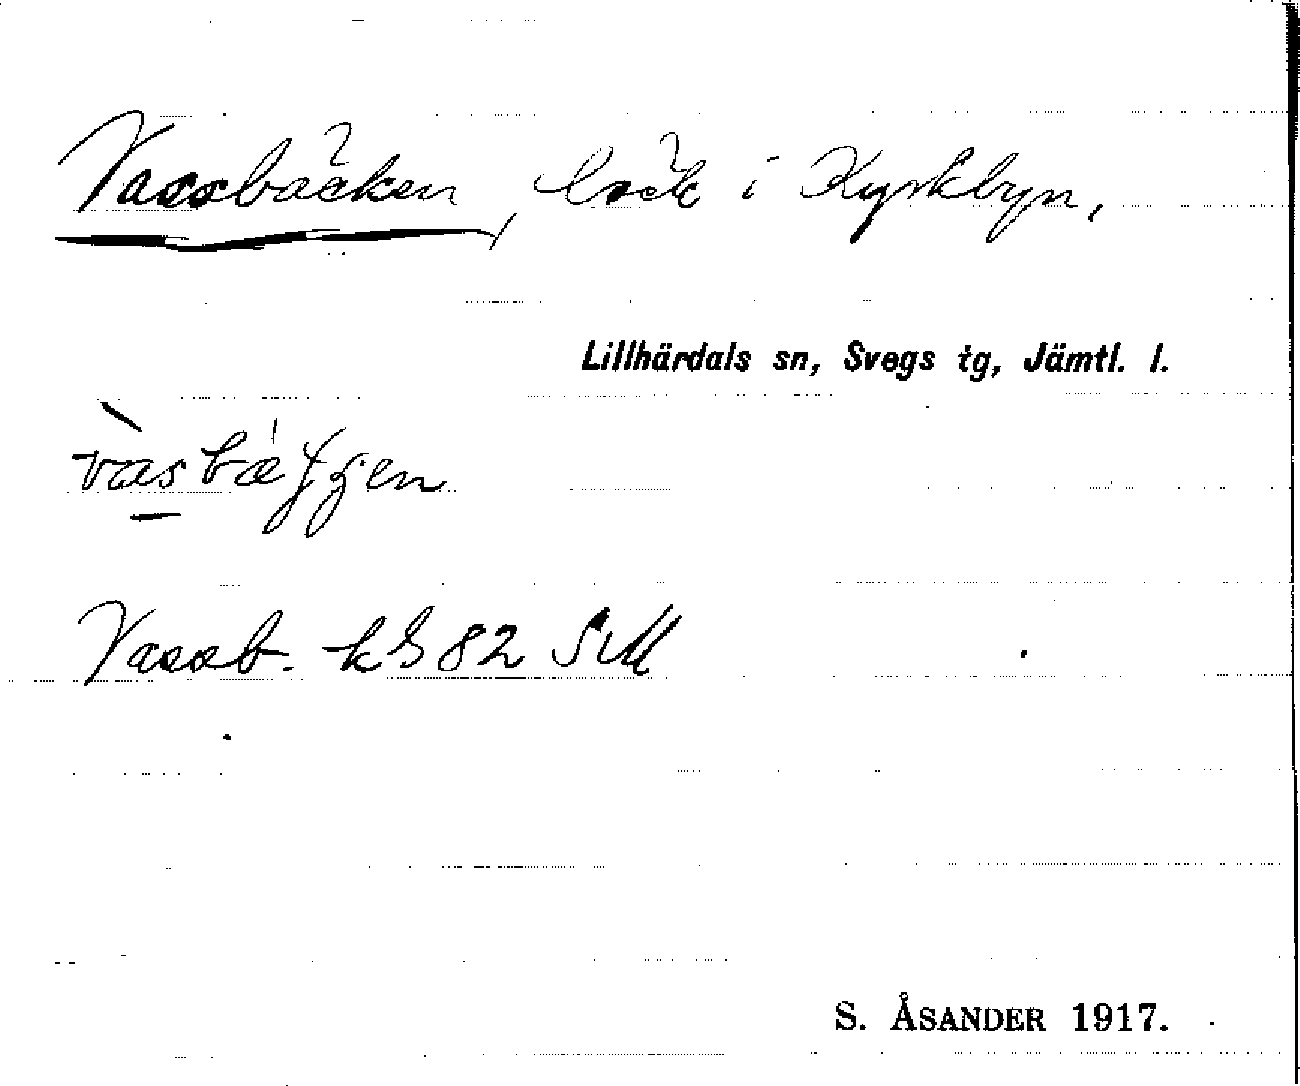 Vassbäcken, bäck i Kyrkbyn,
Lillhärdals sn, Svegs tg, Jämtl. l.
Vassb. 82
S. ÅSANDER 1917.